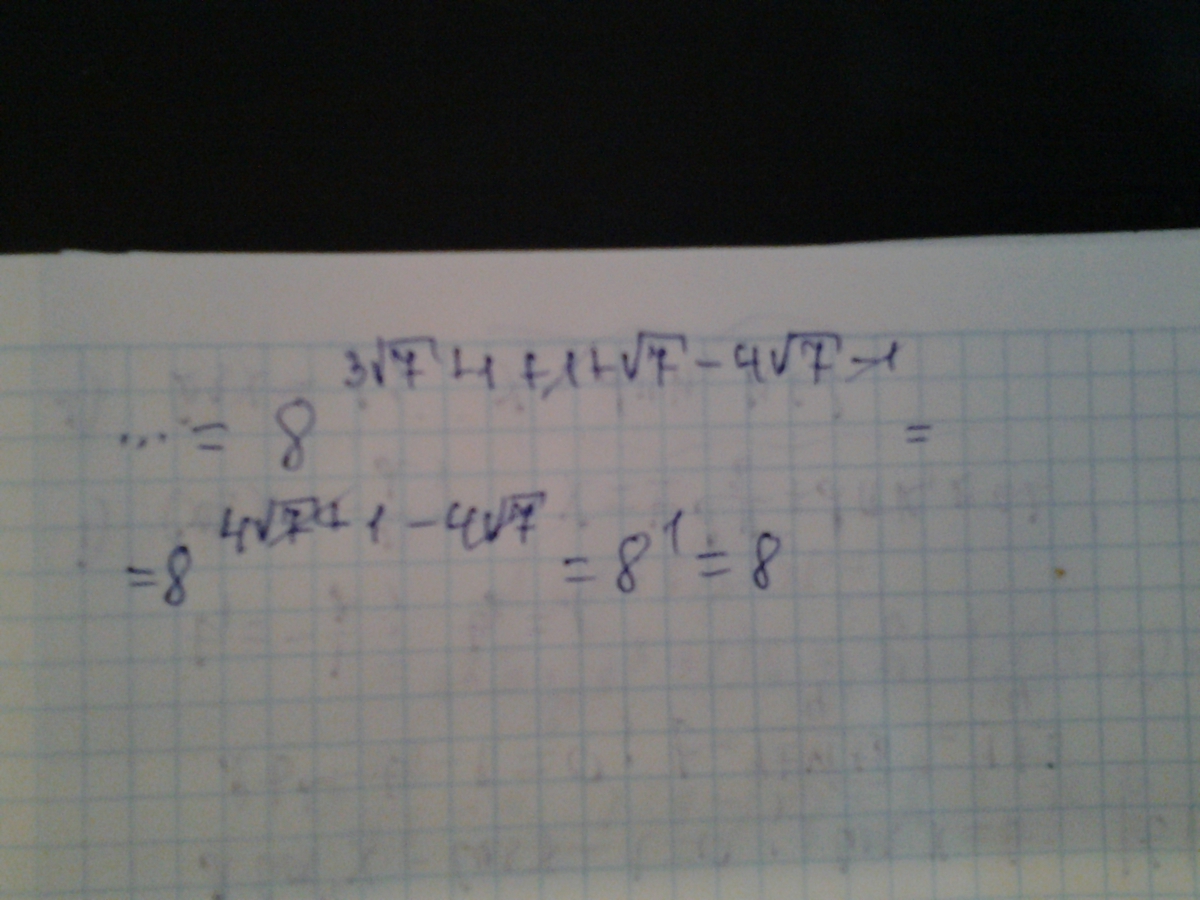 ... = 8^(3√7 + 1 + 1 + √7 - 4√7 - 1) =
= 8^(4√7 + 1 - 4√7) = 8^1 = 8